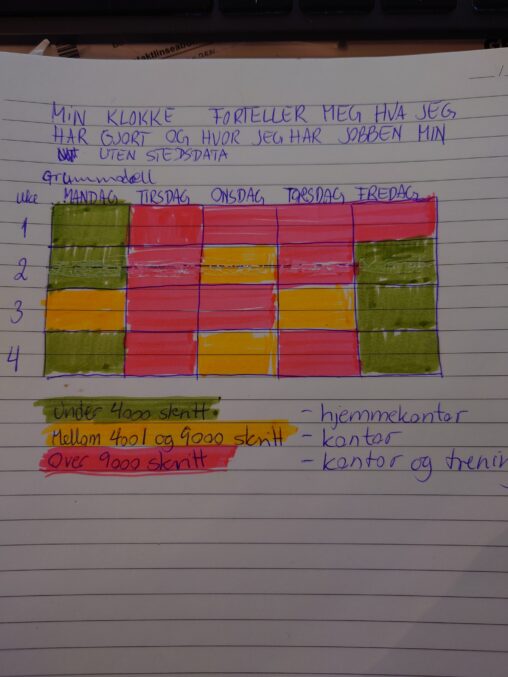 MIN KLOKKE FORTELLER MEG HVA JEG
HAR GJORT OG HVOR JEG HAR JOBBEN MIN
UTEN STEDSDATA
uke MANDAG TIRSDAG ONSDAG TORSDAG FREDAG
1
2
3
4
Under 4000 skritt - hjemmekontor
Mellom 4001 og 9000 skritt - kontor
Over 9000 skritt - kontor og trenin